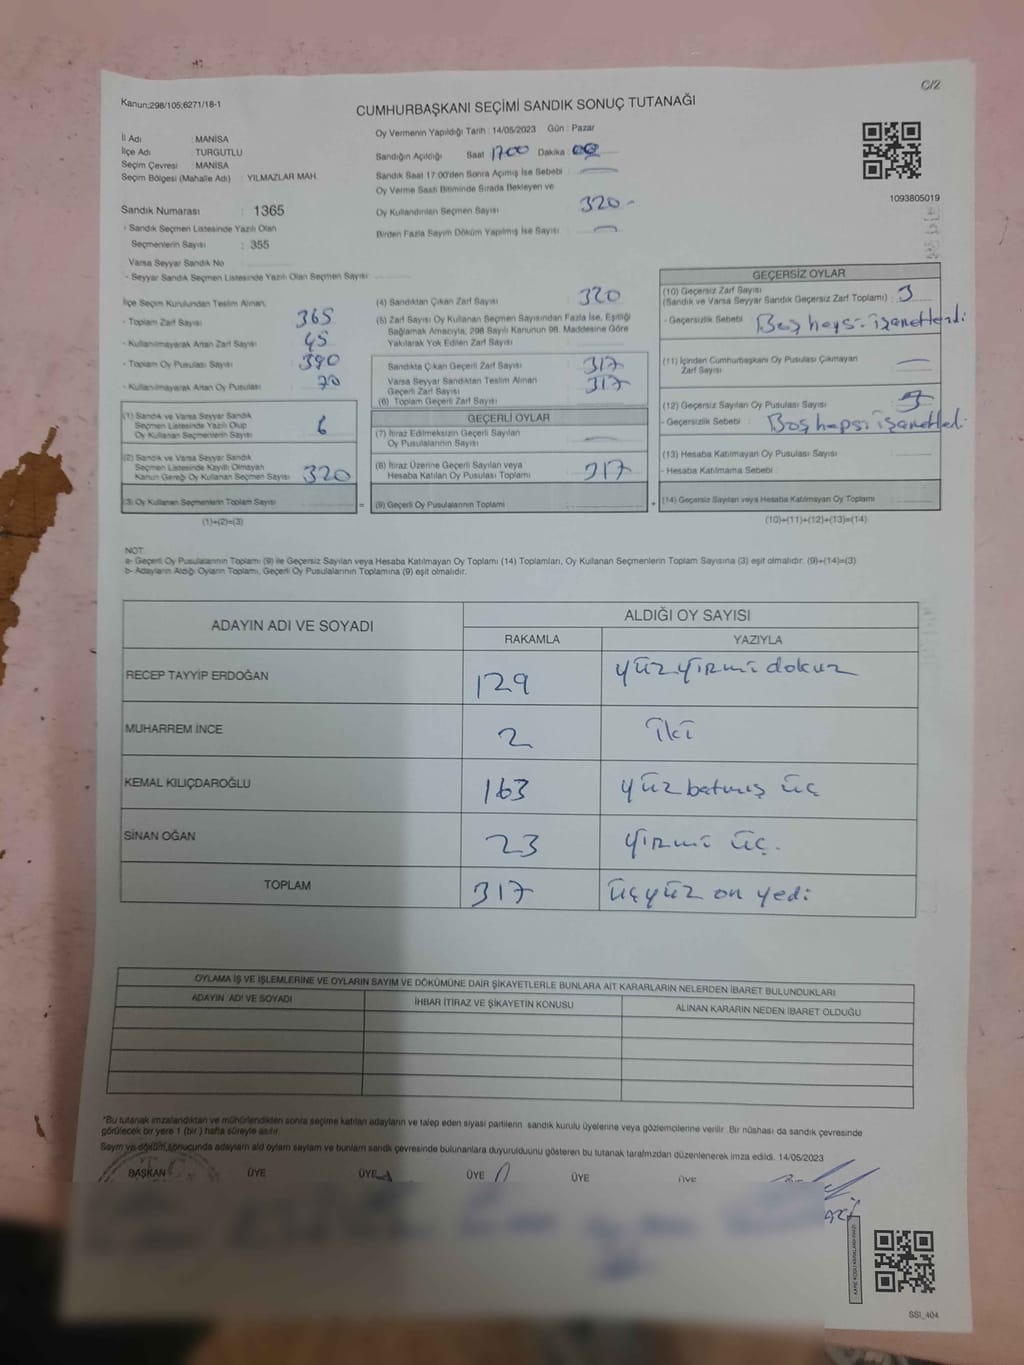 C/2
Kanun:298/105;6271/18-1
CUMHURBAŞKANI SEÇİMİ SANDIK SONUÇ TUTANAĞI
İl Adı : MANİSA
İlçe Adı : TURGUTLU
Seçim Çevresi : MANİSA
Seçim Bölgesi (Mahalle Adı) : YILMAZLAR MAH.
Sandık Numarası : 1365
- Sandık Seçmen Listesinde Yazılı Olan
Seçmenlerin Sayısı : 355
Varsa Seyyar Sandık No
- Seyyar Sandık Seçmen Listesinde Yazılı Olan Seçmen Sayısı
Oy Vermenin Yapıldığı Tarih : 14/05/2023 Gün : Pazar
Sandığın Açıldığı Saat 1700 Dakika : 00
Sandık Saat 17:00'den Sonra Açımış İse Sebebi :
Oy Verme Saati Bitiminde Sırada Bekleyen ve
Oy Kullandırılan Seçmen Sayısı : 320-
Birden Fazla Sayım Döküm Yapılmış İse Sayısı :
1093805019
İlçe Seçim Kurulundan Teslim Alınan;
- Toplam Zarf Sayısı : 365
- Kullanılmayarak Artan Zarf Sayısı : 45
- Toplam Oy Pusulası : 390
- Kullanılmayarak Artan Oy Pusulası : 70
(1) Sandık ve Varsa Seyyar Sandık
Seçmen Listesinde Yazılı Olup
Oy Kullanan Seçmenlerin Sayısı : 6
(2) Sandık ve Varsa Seyyar Sandık
Seçmen Listesinde Kayıtlı Olmayan
Kanun Gereği Oy Kullanan Seçmen Sayısı : 320
(3) Oy Kullanan Seçmenlerin Toplam Sayısı
(1)+(2)=(3)
=
(4) Sandıktan Çıkan Zarf Sayısı : 320
(5) Zarf Sayısı Oy Kullanan Seçmen Sayısından Fazla İse, Eşitliği
Sağlamak Amacıyla, 298 Sayılı Kanunun 98. Maddesine Göre
Yakılarak Yok Edilen Zarf Sayısı :
Sandıkta Çıkan Geçerli Zarf Sayısı : 317
Varsa Seyyar Sandıktan Teslim Alınan
Geçerli Zarf Sayısı : 317
(6) Toplam Geçerli Zarf Sayısı :
GEÇERLİ OYLAR
(7) İtiraz Edilmeksizin Geçerli Sayılan
Oy Pusulalarının Sayısı :
(8) İtiraz Üzerine Geçerli Sayılan veya
Hesaba Katılan Oy Pusulası Toplamı : 317
(9) Geçerli Oy Pusulalarının Toplamı :
+
GEÇERSİZ OYLAR
(10) Geçersiz Zarf Sayısı
(Sandık ve Varsa Seyyar Sandık Geçersiz Zarf Toplamı) : 3
- Geçersizlik Sebebi :
(11) İçinden Cumhurbaşkanı Oy Pusulası Çıkmayan
Zarf Sayısı :
(12) Geçersiz Sayılan Oy Pusulası Sayısı :
- Geçersizlik Sebebi : Boş hepsi işaretledi
(13) Hesaba Katılmayan Oy Pusulası Sayısı :
- Hesaba Katılmama Sebebi :
(14) Geçersiz Sayılan veya Hesaba Katılmayan Oy Toplamı :
(10)+(11)+(12)+(13)=(14)
NOT:
a- Geçerli Oy Pusulalarının Toplamı (9) ile Geçersiz Sayılan veya Hesaba Katılmayan Oy Toplamı (14) Toplamları, Oy Kullanan Seçmenlerin Toplam Sayısına (3) eşit olmalıdır. (9)+(14)=(3)
b- Adayların Aldığı Oyların Toplamı, Geçerli Oy Pusulalarının Toplamına (9) eşit olmalıdır.
ADAYIN ADI VE SOYADI ALDIĞI OY SAYISI
RAKAMLA YAZIYLA
RECEP TAYYİP ERDOĞAN 129 yüz yirmi dokuz
MUHARREM İNCE 2 iki
KEMAL KILIÇDAROĞLU 163 yüz batmış üç
SİNAN OĞAN 23 yirmi üç.
TOPLAM 317 üçyüz on yedi
OYLAMA İŞ VE İŞLEMLERİNE VE OYLARIN SAYIM VE DÖKÜMÜNE DAİR ŞİKAYETLERLE BUNLARA AİT KARARLARIN NELERDEN İBARET BULUNDUKLARI
ADAYIN ADI VE SOYADI İHBAR İTİRAZ VE ŞİKAYETİN KONUSU ALINAN KARARIN NEDEN İBARET OLDUĞU
*Bu tutanak imzalandıktan ve mühürlendikten sonra seçime katılan adayların ve talep eden siyasi partilerin sandık kurulu üyelerine veya gözlemcilerine verilir. Bir nüshası da sandık çevresinde
görülecek bir yere 1 (bir ) hafta süreyle asılır.
Sayım ve döküm sonucunda adayların aldı oyların sayların ve bunların sandık çevresinde bulunanlara duyurulduunu gösteren bu tutanak tarafımızdan düzenlenerek imza edildi. 14/05/2023
BAŞKAN ÜYE ÜYE ÜYE ÜYE ÜYE
SSİ_404